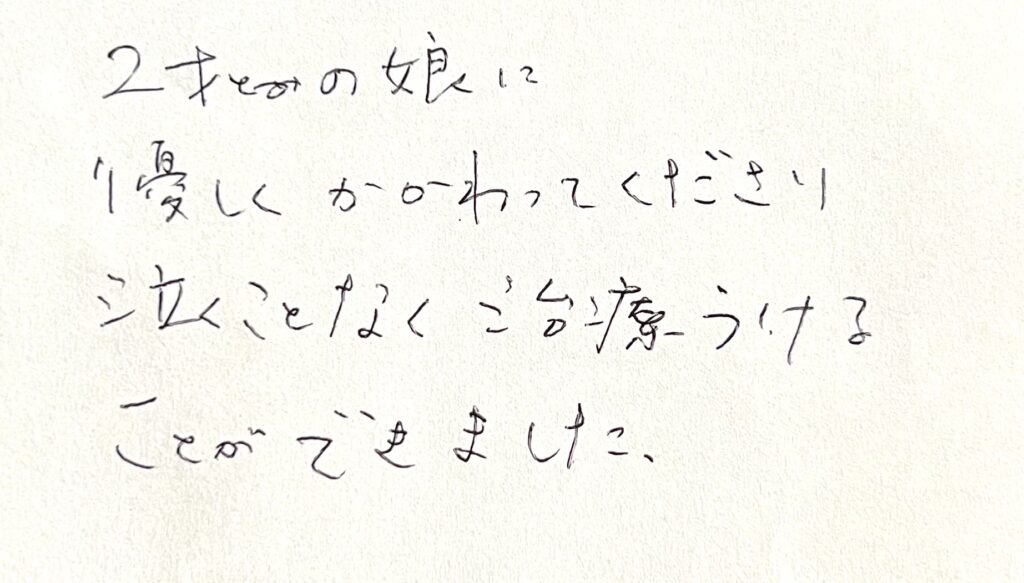 2才の娘に
優しくかかわってくださり
泣くことなく治療うける
ことができました、